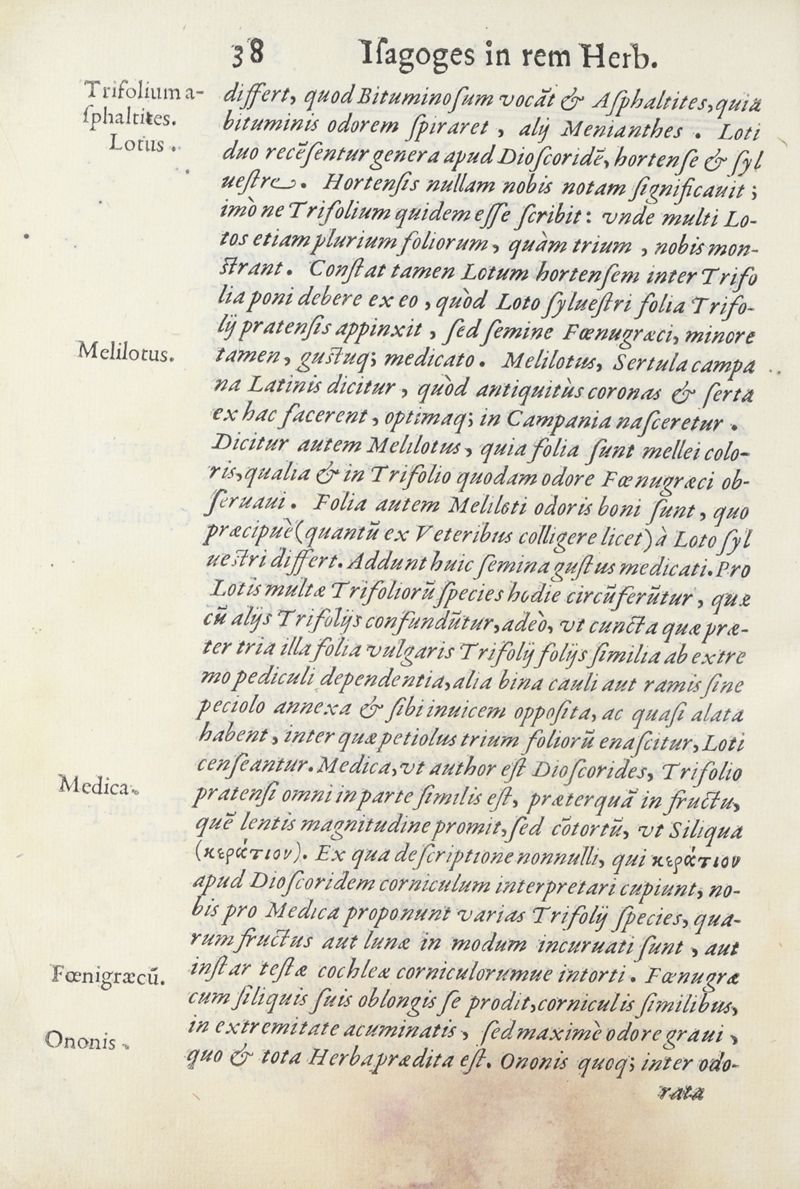 38 Iſagoges in rem Herb.
Trifolium a-
ſphaltites.
Lotus.
differt, quod Bituminoſum vocāt & Aſphaltites, quia
bituminis odorem ſpiraret, alij Menianthes. Loti
duo recēſentur genera apud Dioſcoridē, hortenſe & ſyl
ueſtre. Hortenſis nullam nobis notam ſignificauit;
imò ne Trifolium quidem eſſe ſcribit: vnde multi Lo-
tos etiam plurium foliorum, quàm trium, nobis mon-
ſtrant. Conſtat tamen Lotum hortenſem inter Trifo
lia poni debere ex eo, quòd Loto ſylueſtri folia Trifo-
lij pratenſis appinxit, ſed ſemine Fœnugræci, minore
Melilotus.
tamen, guſtuq; medicato. Melilotus, Sertula campa
na Latinis dicitur, quòd antiquitùs coronas & ſerta
ex hac facerent, optimaq; in Campania naſceretur.
Dicitur autem Melilotus, quia folia ſunt mellei colo-
ris, qualia & in Trifolio quodam odore Fœnugræci ob-
ſeruaui. Folia autem Meliloti odoris boni ſunt, quo
præcipuè (quantū ex Veteribus colligere licet) à Loto ſyl
ueſtri differt. Addunt huic ſemina guſtus medicati. Pro
Lotis multæ Trifoliorū ſpecies hodie circūferūtur, quæ
cū alijs Trifolijs confundūtur, adeò, vt cuncta quæ præ-
ter tria illa folia vulgaris Trifolij folijs ſimilia ab extre
mo pediculi dependentia, alia bina cauli aut ramis ſine
peciolo annexa & ſibi inuicem oppoſita, ac quaſi alata
habent, inter quæ petiolus trium foliorū enaſcitur, Loti
cenſeantur. Medica, vt author eſt Dioſcorides, Trifolio
Medica.
pratenſi omni in parte ſimilis eſt, præterquā in fructu,
quē lentis magnitudine promit, ſed cōtortū, vt Siliqua
(κεράτιον). Ex qua deſcriptione nonnulli, qui κεράτιον
apud Dioſcoridem corniculum interpretari cupiunt, no-
bis pro Medica proponunt varias Trifolij ſpecies, qua-
rum fructus aut lunæ in modum incuruati ſunt, aut
Fœnigræcū.
inſtar teſtæ cochleæ corniculorumue intorti. Fœnugræ
cum ſiliquis ſuis oblongis ſe prodit, corniculis ſimilibus,
in extremitate acuminatis, ſed maximè odore graui,
Ononis.
quo & tota Herba prædita eſt. Ononis quoq; inter odo-
rata